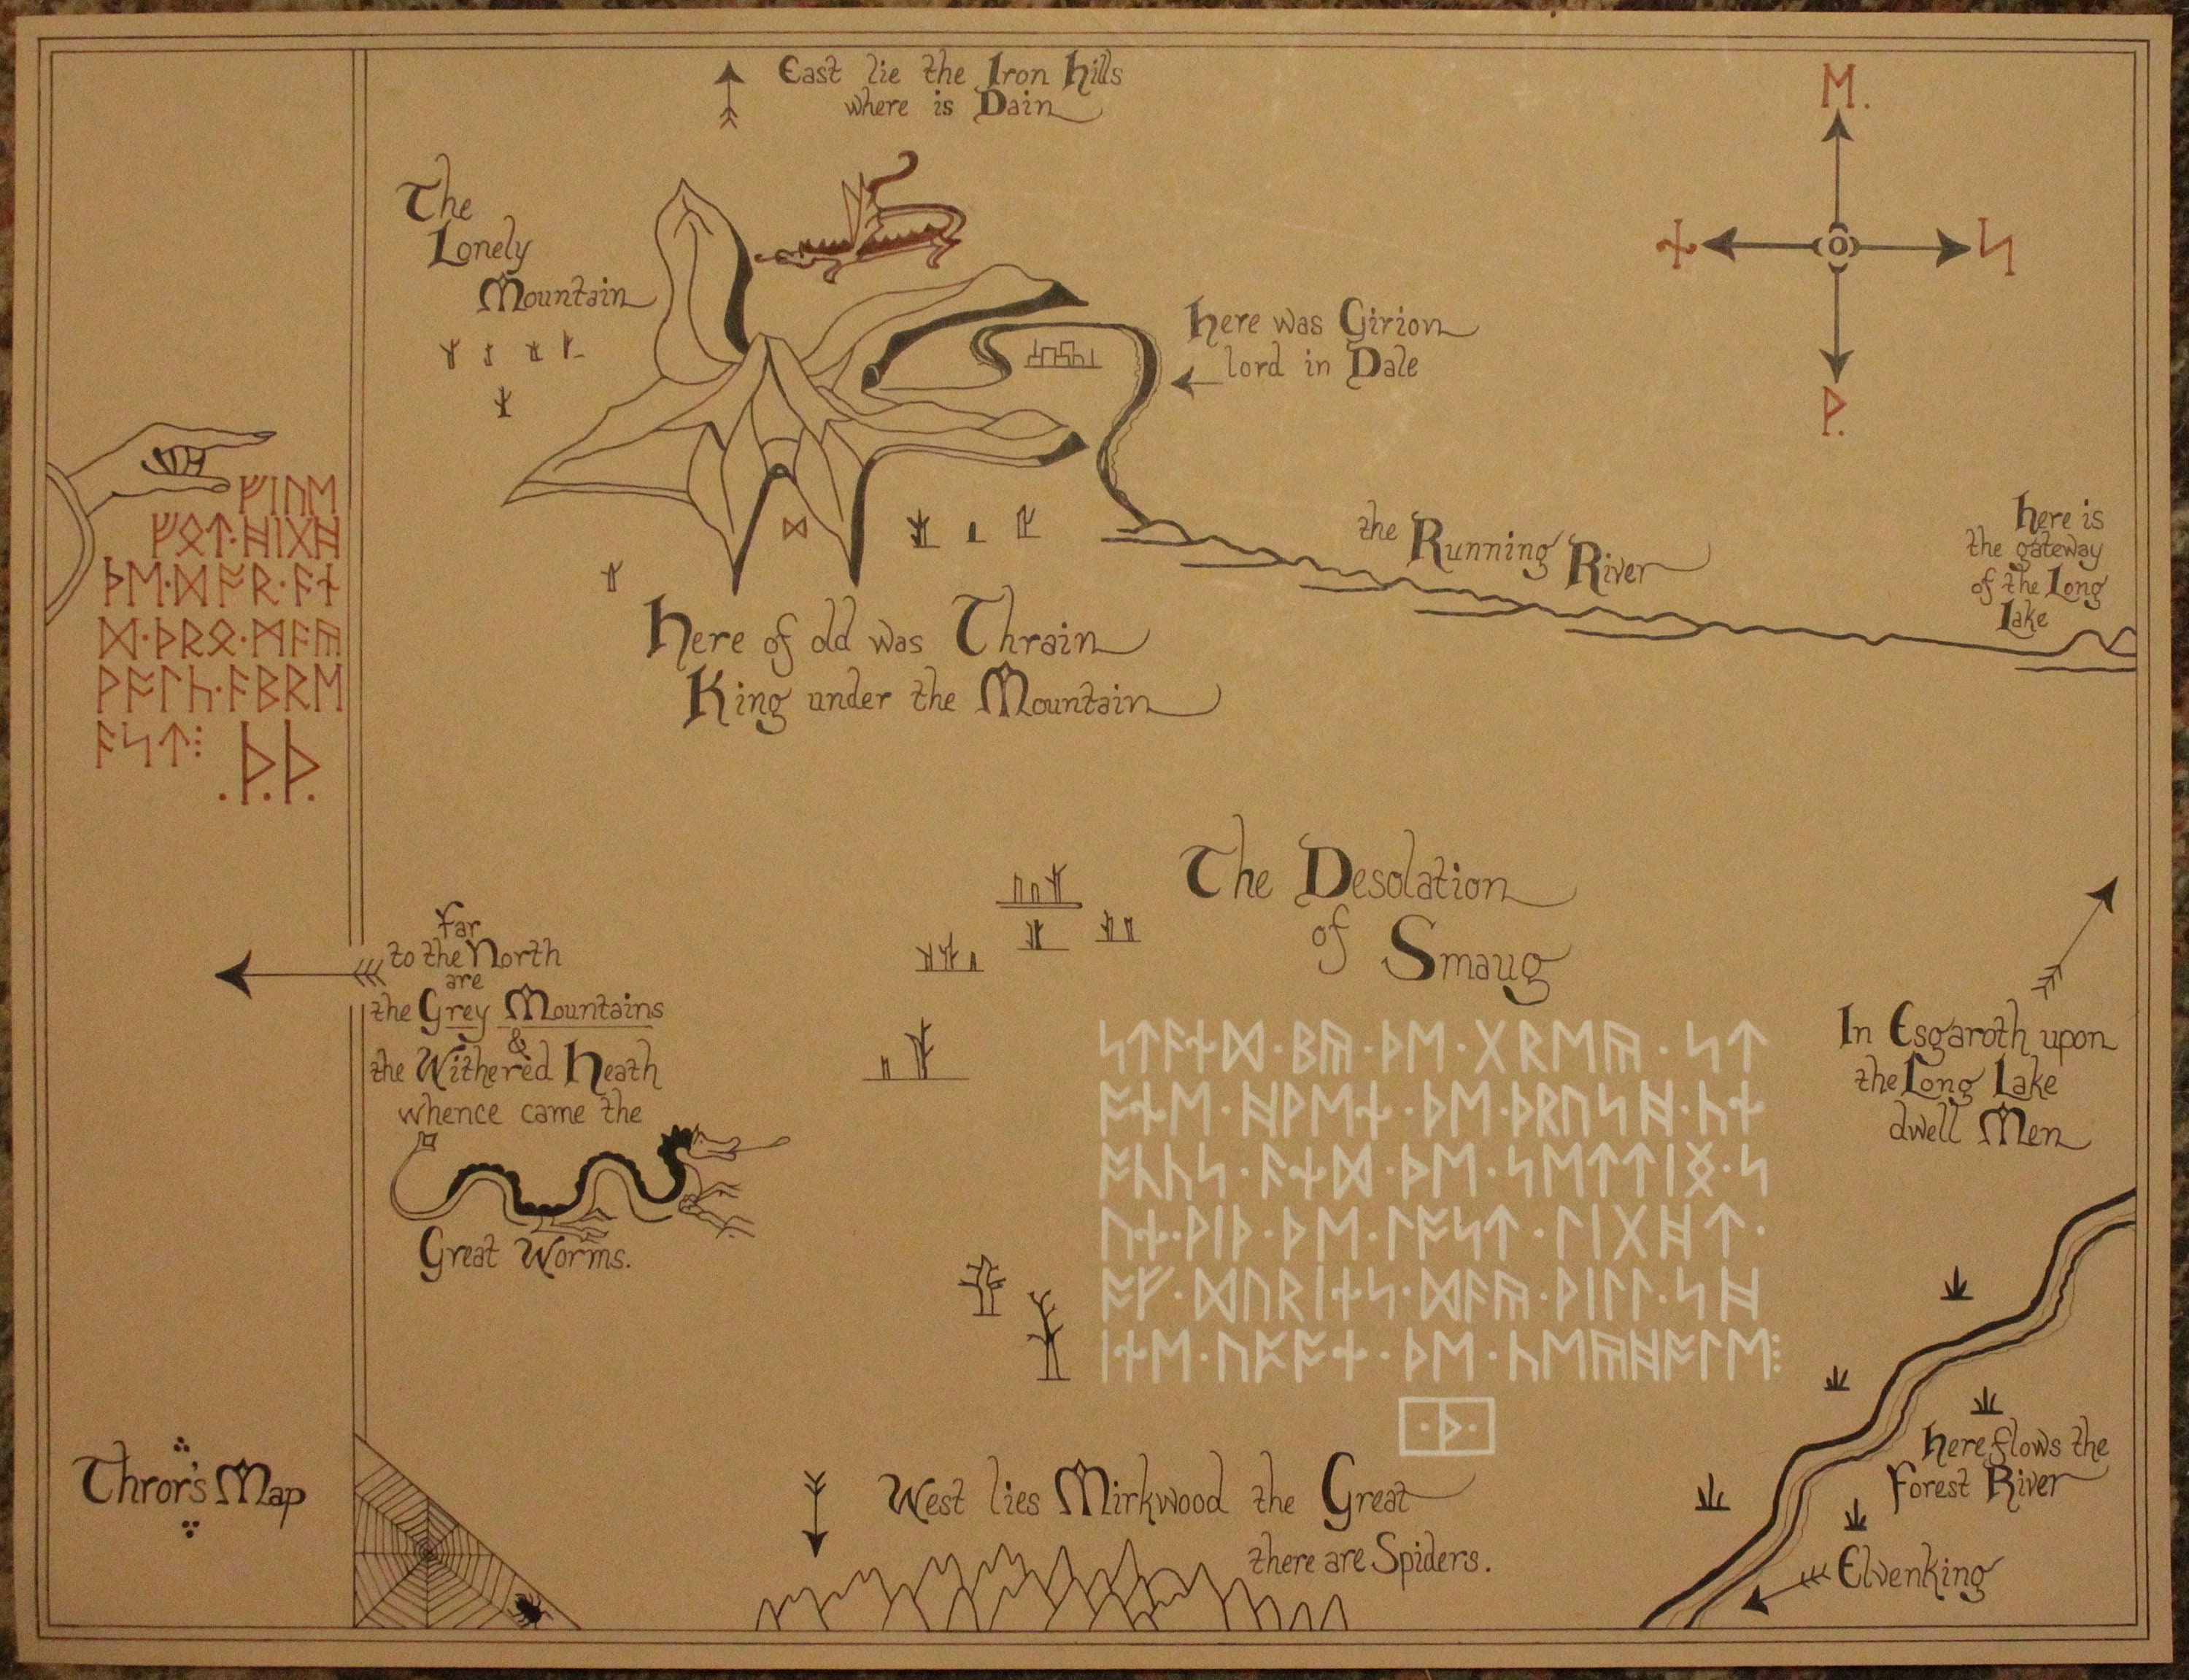 East lie the Iron Hills
where is Dain
ᛖ.
The
Lonely
Mountain
ᚾ
ᛋ
Here was Girion
lord in Dale
ᚹ.
ᚠᛁᚢᛖ
ᚠᛟᛏ·ᚻᛁᚷᚻ
ᚦᛖ·ᛞᚩᚱ·ᚪᚾ
ᛞ·ᚦᚱᛟ·ᛗᚪᚣ
ᚹᚩᛚᚳ·ᚪᛒᚱᛖ
ᚪᛋᛏ⁝
.ᚦ.ᚦ.
ᛞ
the Running River
Here is
the gateway
of the Long
Lake
Here of old was Thrain
King under the Mountain
The Desolation
of Smaug
Far
to the North
are
the Grey Mountains
&
the Withered Heath
whence came the
Great Worms.
ᛋᛏᚪᚾᛞ·ᛒᚣ·ᚦᛖ·ᚷᚱᛖᚣ·ᛋᛏ
ᚩᚾᛖ·ᚻᚹᛖᚾ·ᚦᛖ·ᚦᚱᚢᛋᚻ·ᚳᚾ
ᚩᚳᚳᛋ·ᚪᚾᛞ·ᚦᛖ·ᛋᛖᛏᛏᛁᛝ·ᛋ
ᚢᚾ·ᚹᛁᚦ·ᚦᛖ·ᛚᚩᛋᛏ·ᛚᛁᚷᚻᛏ·
ᚩᚠ·ᛞᚢᚱᛁᚾᛋ·ᛞᚪᚣ·ᚹᛁᛚᛚ·ᛋᚻ
ᛁᚾᛖ·ᚢᛈᚩᚾ·ᚦᛖ·ᚳᛖᚣᚻᚩᛚᛖ⁝
·ᚦ·
In Esgaroth upon
the Long Lake
dwell Men
Here flows the
Forest River
Elvenking
Thror's Map
West lies Mirkwood the Great
there are Spiders.